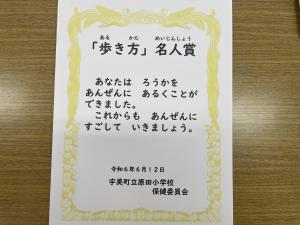 ある かた めいじんしょう
「歩き方」名人賞
あなたは ろうかを
あんぜんに あるくことが
できました。
これからも あんぜんに
すごして いきましょう。
令和６年６月１２日
宇美町立原田小学校
保健委員会